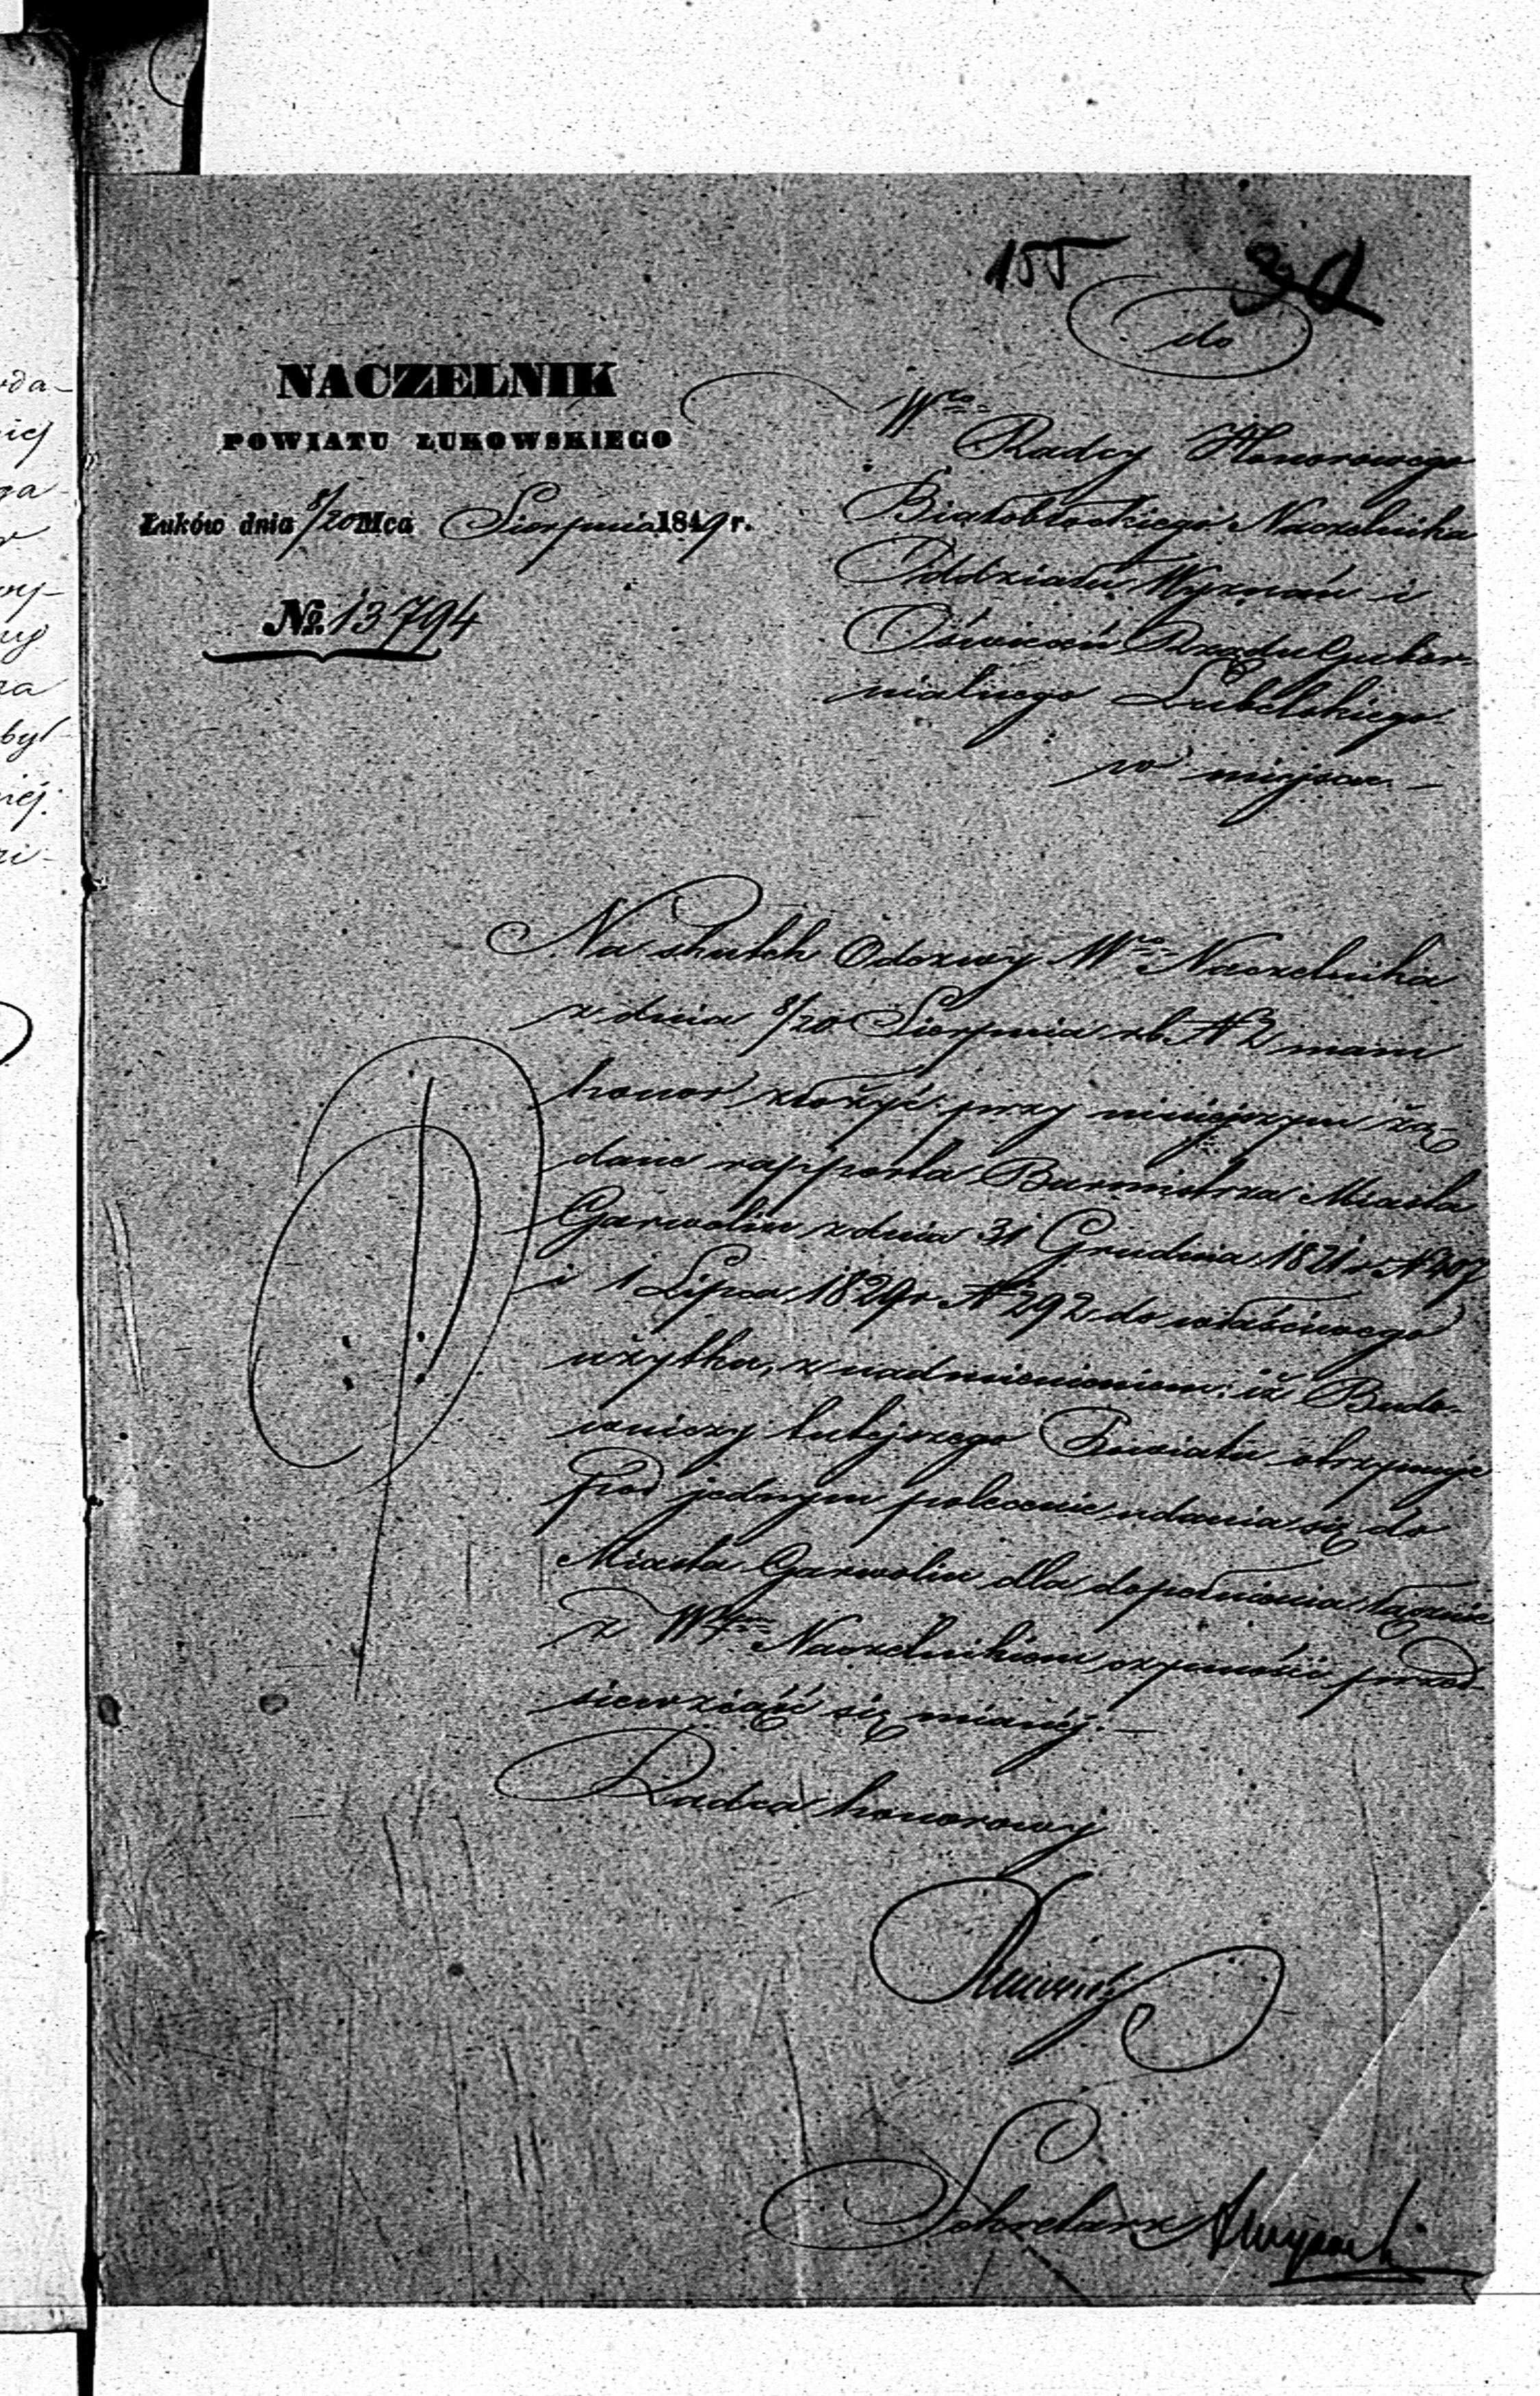 155 30
do
NACZELNIK
POWIATU ŁUKOWSKIEGO
Łuków dnia 8/20 Mca Sierpnia 1849 r.
No. 13794
Wgo
Radcy Honorowego
Białobłockiego Naczelnika
Oddziału Wyznań i
Oświeceń Rządu Guber-
nialnego Lubelskiego
w miejscu. —
Na skutek Odezwy Wgo Naczelnika
z dnia 8/20 Sierpnia rb N 2 mam
honor złożyć przy niniejszym żą-
dane rapporta Burmistrza Miasta
Garwolin z dnia 31 Grudnia 1821 r N 407
i 1 Lipca 1829 r N 292 do właściwego
użytku, z nadmienieniem: iż Budo-
wniczy tutejszego Powiatu otrzymuje
pod jednym polecenie udania się do
Miasta Garwolin dla dopełnienia łącznie
z Wym Naczelnikiem czynności przed-
siewziąść się mianéj. —
Radca honorowy
Sekretarz